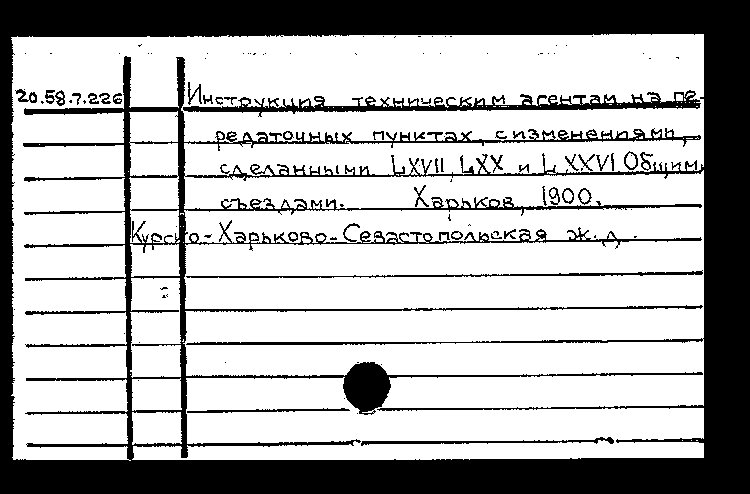 20.58.7.226 Инструкция техническим агентам на пе-
редаточных пунктах, с изменениями,
сделанными LXVII, LXX и LXXVI Общим
съездами. Харьков, 1900.
Курско-Харьково-Севастопольская ж.д.